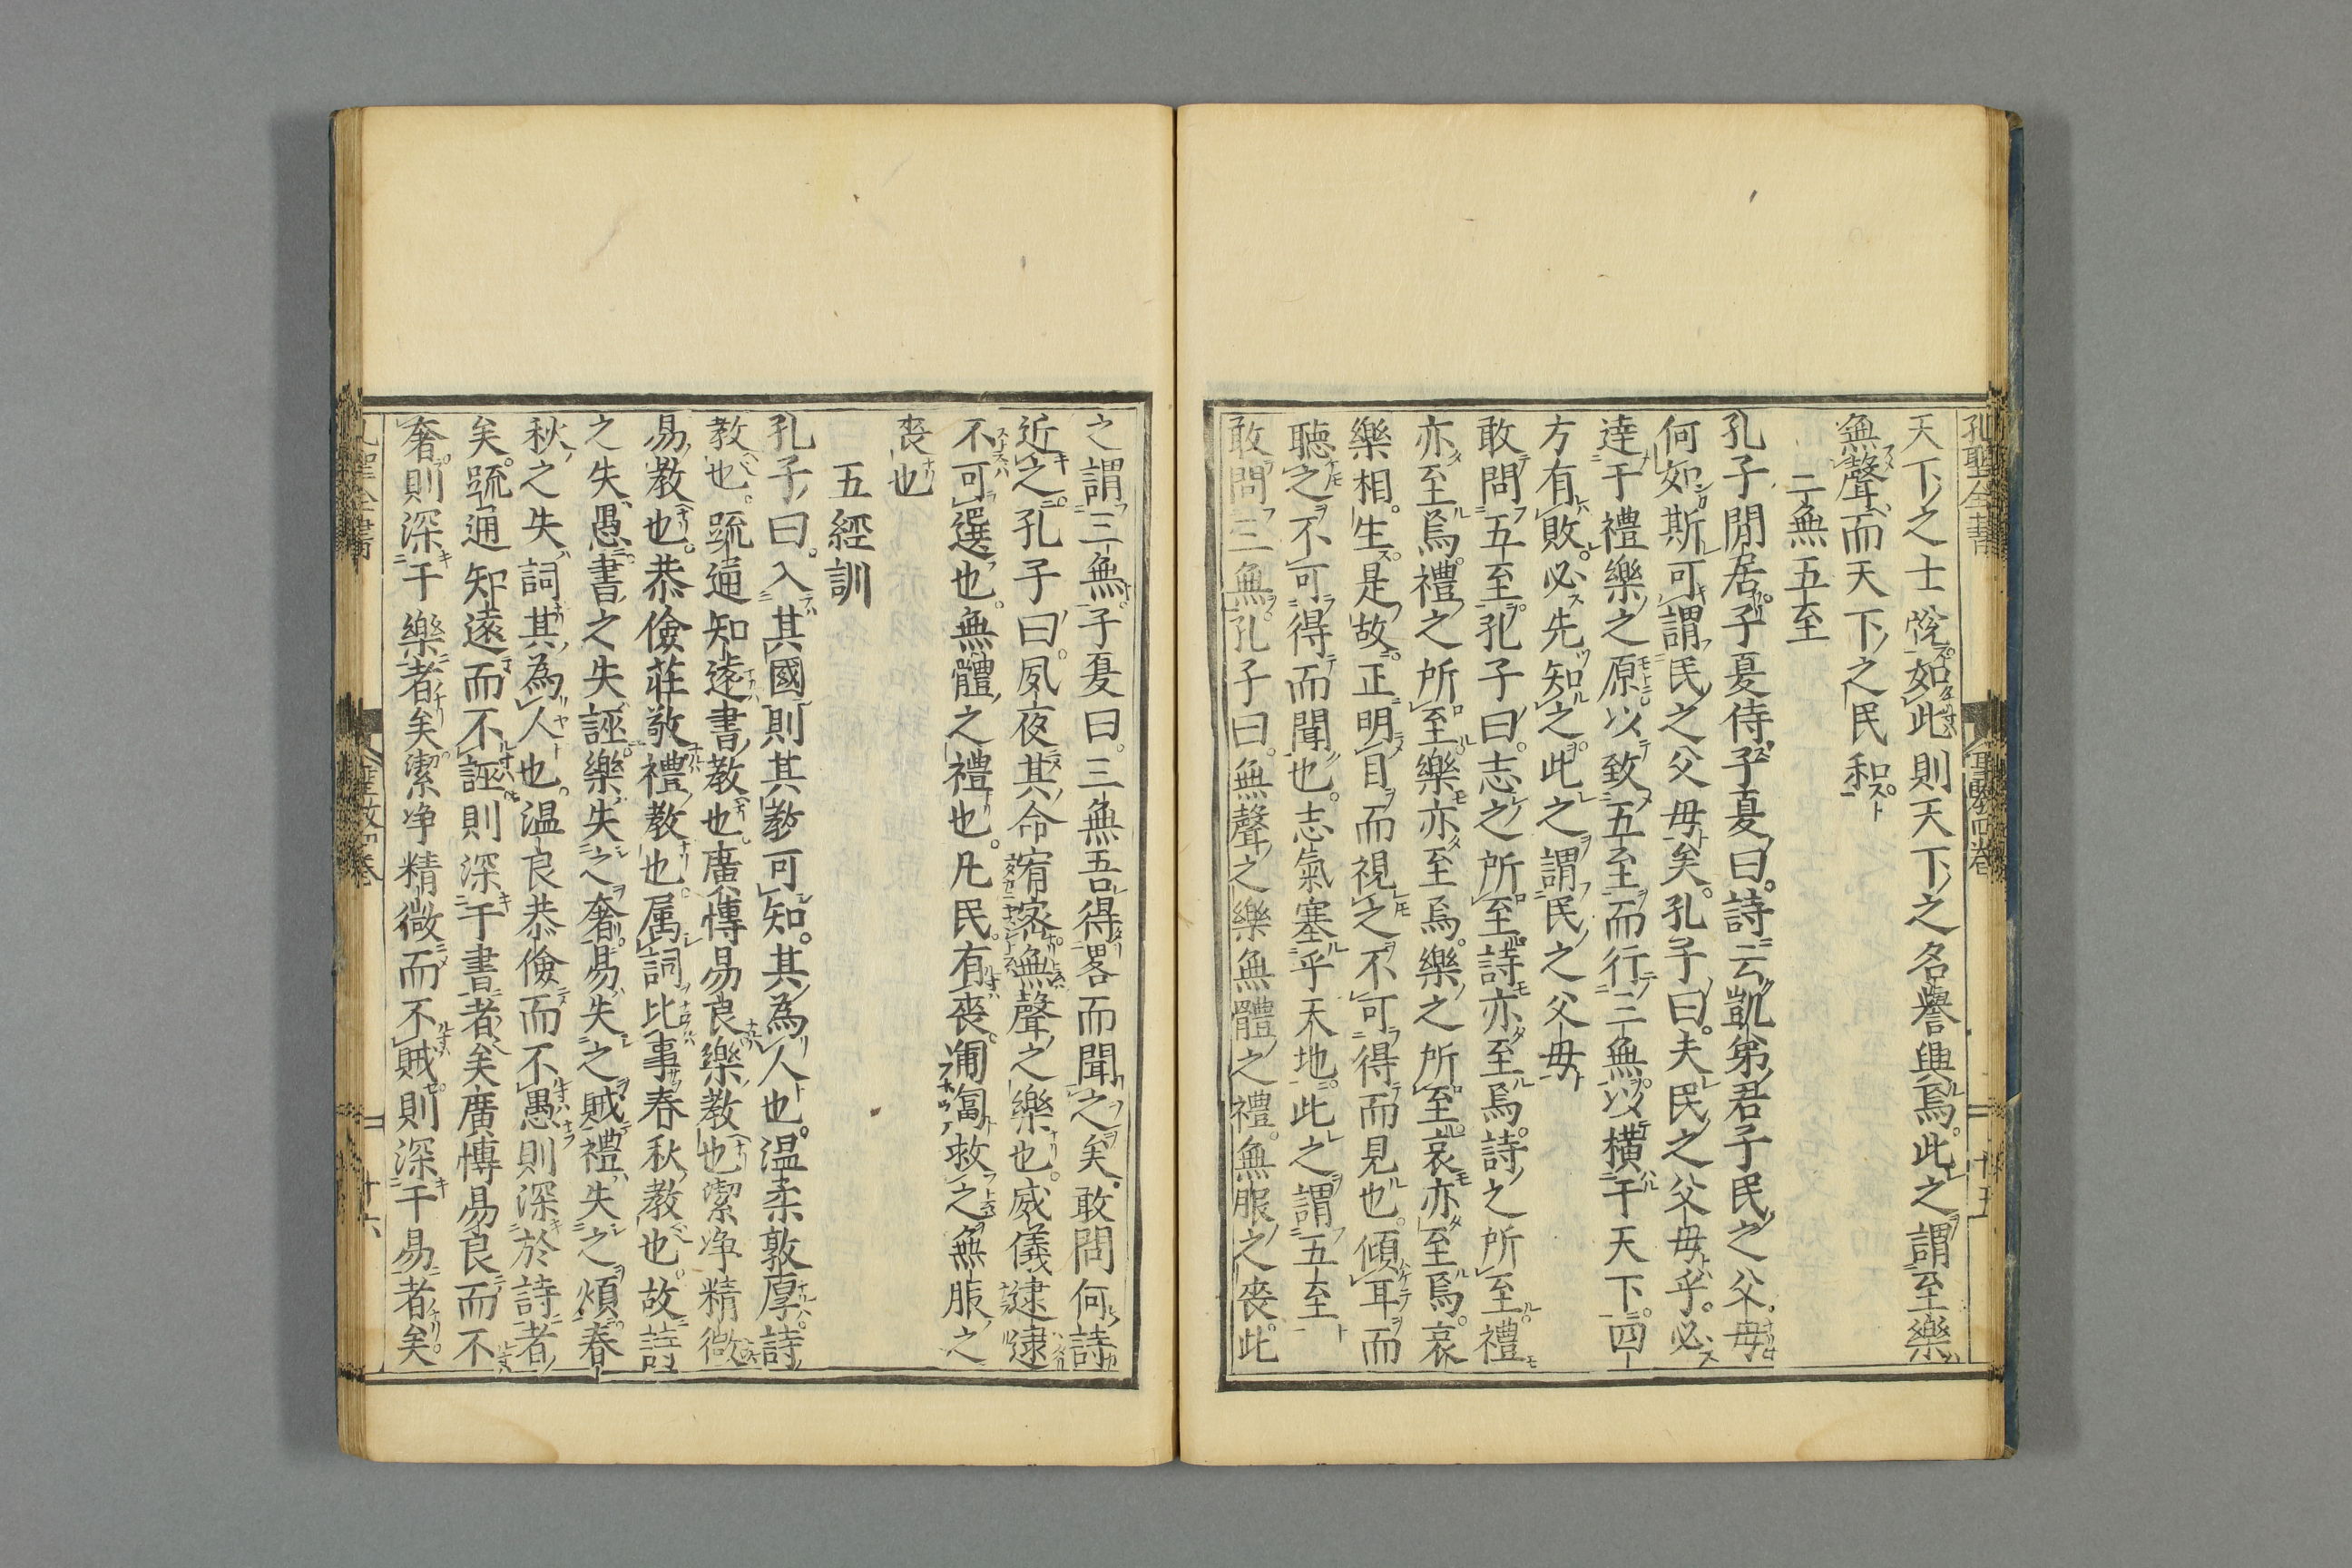 孔聖全書
聖教四卷
十五
天下之士悅如此則天下之名譽興焉此之謂至樂
無聲而天下之民和
三無五至
孔子閒居子夏侍子夏曰詩云凱弟君子民之父母
何如斯可謂民之父母矣孔子曰夫民之父母乎必
達于禮樂之原以致五至而行三無以橫于天下四
方有敗必先知之此之謂民之父母
敢問五至孔子曰志之所至詩亦至焉詩之所至禮
亦至焉禮之所至樂亦至焉樂之所至哀亦至焉哀
樂相生是故正明目而視之不可得而見也傾耳而
聽之不可得而聞也志氣塞乎天地此之謂五至
敢問三無孔子曰無聲之樂無體之禮無服之喪此
之謂三無子夏曰三無吾得畧而聞之矣敢問何詩
近之孔子曰夙夜其命宥宻無聲之樂也威儀逮逮
不可選也無體之禮也凡民有喪匍匐救之無服之
喪也
五經訓
孔子曰入其國則其教可知其為人也温柔敦厚詩
教也䟽通知遠書教也廣博易良樂教也潔净精微
易教也恭儉莊敬禮教也属詞比事春秋教也故詩
之失愚書之失誣樂失之奢易失之賊禮失之煩春
秋之失詞其為人也温良恭儉而不愚則深於詩者
矣䟽通知遠而不誣則深于書者矣廣博易良而不
奢則深于樂者矣潔净精微而不賊則深于易者矣
孔聖全書
聖教四卷
十六